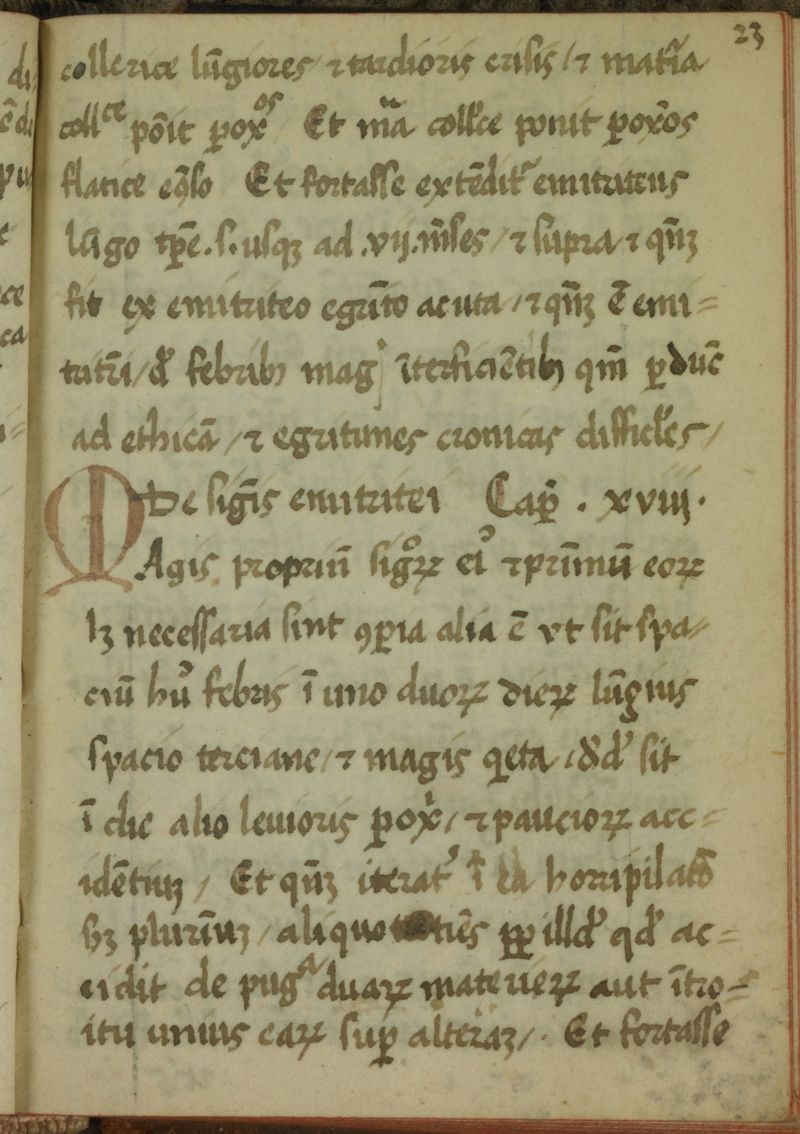 23
collerice lūgiores ⁊ tardioris crisis / ⁊ mat̃ia
collce pōit ꝑoxos / Et m̃a coll̃ce ponit ꝑox̃os
flatice eꝯ̃so Et fortasse extēdit᷑ emitriteus
lūgo tꝑe .s. usqꝫ ad .vij. m̃ses / ⁊ supra ⁊ qn̄qꝫ
fit ex emitriteo egrit̃o acuta / ⁊ qn̄qꝫ ē emi=
tut̃i / đ febribꝰ mag̉ īterficiētibꝰ qm̄ ꝑducc̄
ad ethicā / ⁊ egritunes cronicas difficil̃es /
De sigñis emitritei Cap̃ . xviij .
MAgis propriū sigoꝝ ei᷒ ⁊ prīmū eoꝝ
lꝫ necessaria sint ꝯꝑia alia ē vt sit spa/
ciū hu᷒ febris ī uno duoꝝ dieꝝ lūgius
spacio terciane / ⁊ magis q̓eta / đđ sit
ī die alio leuioris ꝑox̓ / ⁊ paucioꝝ acc=
idētiuꝫ / Et qn̄qꝫ iterat᷑ ī ea horripilatō
sꝫ plurīuꝫ / aliquotiēs ꝓp̃ illđ qđ ac=
cidit de pugᵃ duaꝝ materieꝝ aut ītro=
itu unius eaꝝ suꝑ alteraꝫ /. Et fortasse